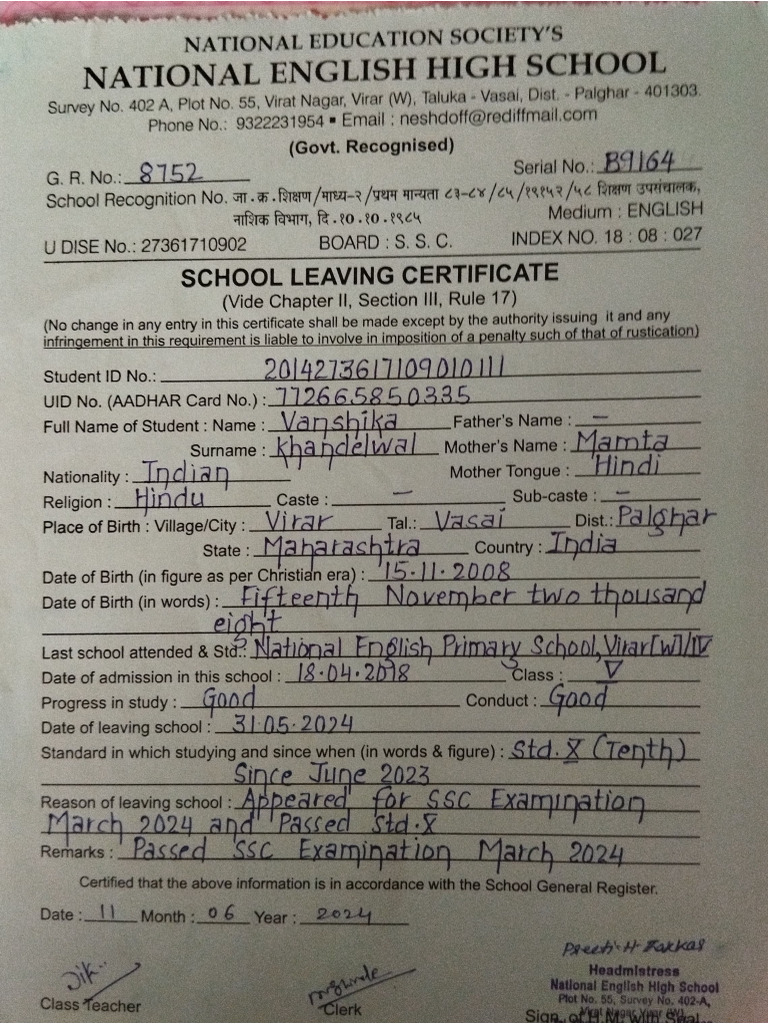 NATIONAL EDUCATION SOCIETY'S
NATIONAL ENGLISH HIGH SCHOOL
Survey No. 402 A, Plot No. 55, Virat Nagar, Virar (W), Taluka - Vasai, Dist. - Palghar - 401303.
Phone No.: 9322231954 ▪ Email : neshdoff@rediffmail.com
(Govt. Recognised)
G. R. No.: 8752 Serial No.: B9164
School Recognition No. जा.क्र.शिक्षण/माध्य-२/प्रथम मान्यता ८३-८४/८५/१९१५२/५८ शिक्षण उपसंचालक,
नाशिक विभाग, दि.१०.१०.१९८५ Medium : ENGLISH
U DISE No.: 27361710902 BOARD : S. S. C. INDEX NO. 18 : 08 : 027
SCHOOL LEAVING CERTIFICATE
(Vide Chapter II, Section III, Rule 17)
(No change in any entry in this certificate shall be made except by the authority issuing it and any
infringement in this requirement is liable to involve in imposition of a penalty such of that of rustication)
Student ID No.: 2014273617109010111
UID No. (AADHAR Card No.) : 772665850335
Full Name of Student : Name : Vanshika Father's Name : —
Surname : Khandelwal Mother's Name : Mamta
Nationality : Indian Mother Tongue : Hindi
Religion : Hindu Caste : — Sub-caste : —
Place of Birth : Village/City : Virar Tal.: Vasai Dist.: Palghar
State : Maharashtra Country : India
Date of Birth (in figure as per Christian era) : 15.11.2008
Date of Birth (in words) : Fifteenth November two thousand
eight
Last school attended & Std.: National English Primary School, Virar[W]/IV
Date of admission in this school : 18.04.2018 Class : V
Progress in study : Good Conduct : Good
Date of leaving school : 31.05.2024
Standard in which studying and since when (in words & figure) : Std. X (Tenth)
Since June 2023
Reason of leaving school : Appeared for SSC Examination
March 2024 and Passed Std.X
Remarks : Passed SSC Examination March 2024
Certified that the above information is in accordance with the School General Register.
Date : 11 Month : 06 Year : 2024
Preeti H Takkar
Headmistress
National English High School
Plot No. 55, Survey No. 402-A,
Class Teacher Clerk Sign. of H.M. with Seal